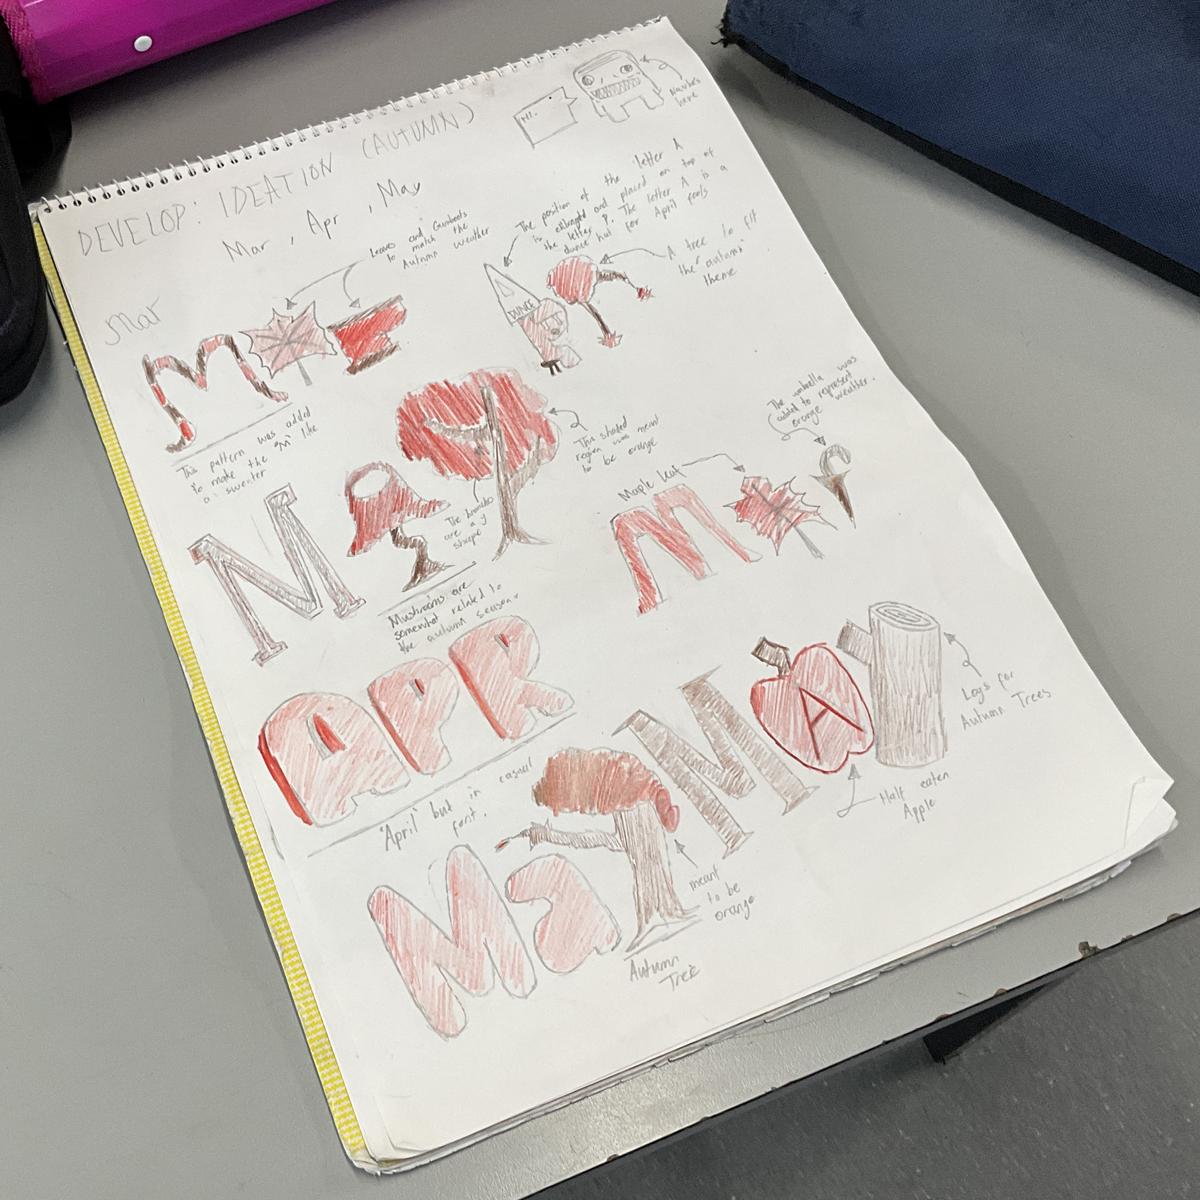 DEVELOP: IDEATION (AUTUMN)
Mar, Apr, May
Hi.
Navbe's
here
Mar
Leaves and Gumboots
to match the
Autumn weather
The position of the letter A
is enlarged and placed on top of
the letter P. The letter A is a
dunce hat for April fools
A tree to fit
the "autumn"
theme
DUNCE
This pattern was added
to make the "M" like
a sweater
This shaded
region was meant
to be orange
The umbrella was
added to represent
orange weather.
Maple leaf
The branches
are a y
shape
Mushrooms are
somewhat related to
the autumn season.
M
M
APR
"April" but in casual
font.
M
A
Logs for
Autumn Trees
Half eaten
Apple
Ma
meant
to be
orange
Autumn
Tree